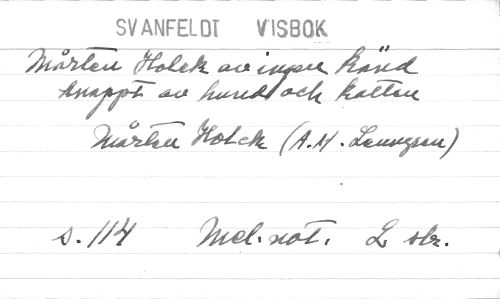 SVANFELDT VISBOK
Mårten Holck av ingen känd
knappt av hund och katten
Mårten Holck (A.M. Lenngren)
s. 114 Mel. not. 2 str.